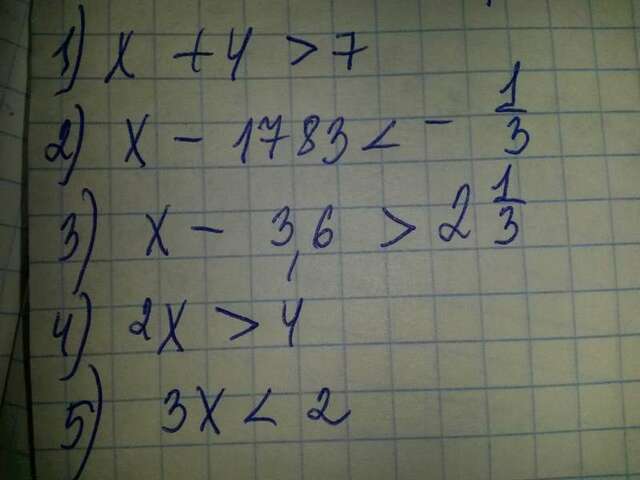 1) x + 4 > 7
2) x - 1783 < - 1/3
3) x - 3,6 > 2 1/3
4) 2x > 4
5) 3x < 2